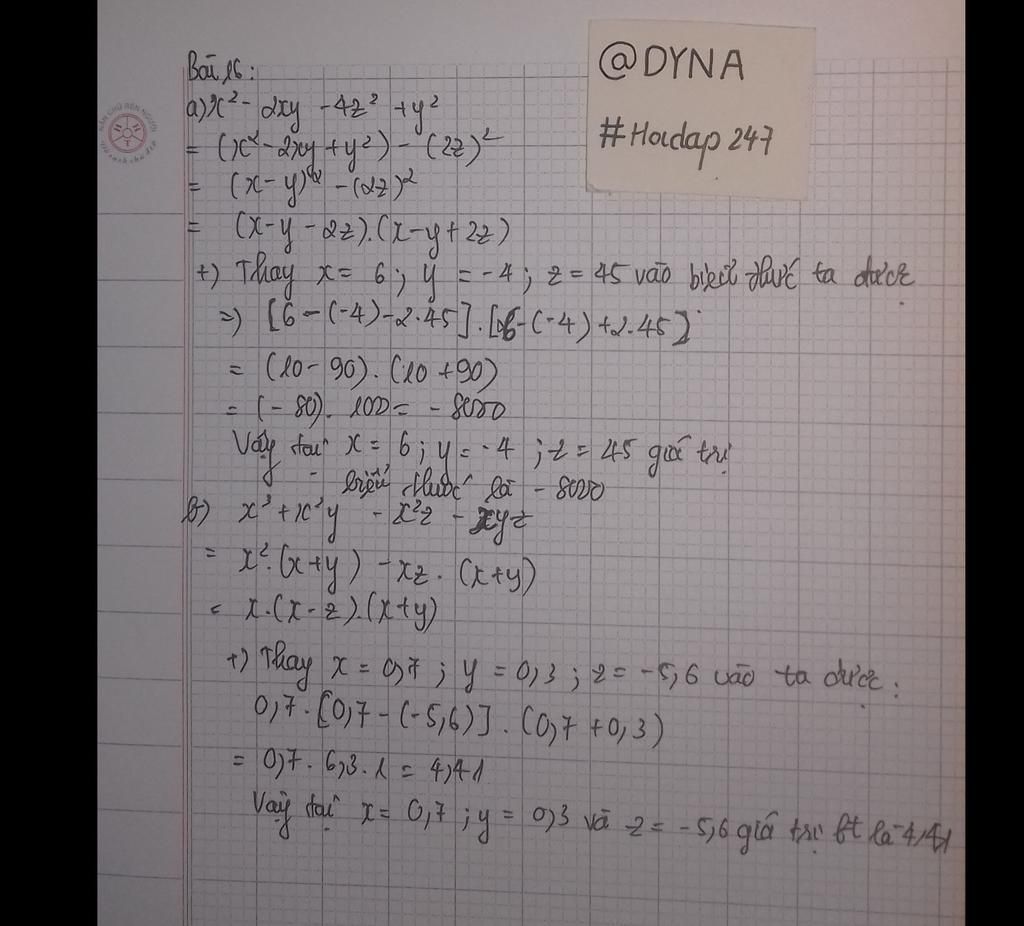 @DYNA
#Hoidap 247
Bài 16:
a) x² - 2xy - 4z² + y²
= (x² - 2xy + y²) - (2z)²
= (x - y)² - (2z)²
= (x - y - 2z).(x - y + 2z)
+) Thay x = 6 ; y = -4 ; z = 45 vào biểu thức ta được
=) [6 - (-4) - 2.45] . [6 - (-4) + 2.45]
= (10 - 90) . (10 + 90)
= (-80) . 100 = - 8000
Vậy tại x = 6 ; y = -4 ; z = 45 giá trị
biểu thức là - 8000
b) x³ + x²y - x²z - xyz
= x².(x+y) - xz . (x+y)
= x.(x - z).(x+y)
+) Thay x = 0,7 ; y = 0,3 ; z = -5,6 vào ta được :
0,7 . [0,7 - (-5,6)] . (0,7 + 0,3)
= 0,7 . 6,3 . 1 = 4,41
Vậy tại x = 0,7 ; y = 0,3 và z = -5,6 giá trị bt là 4,41